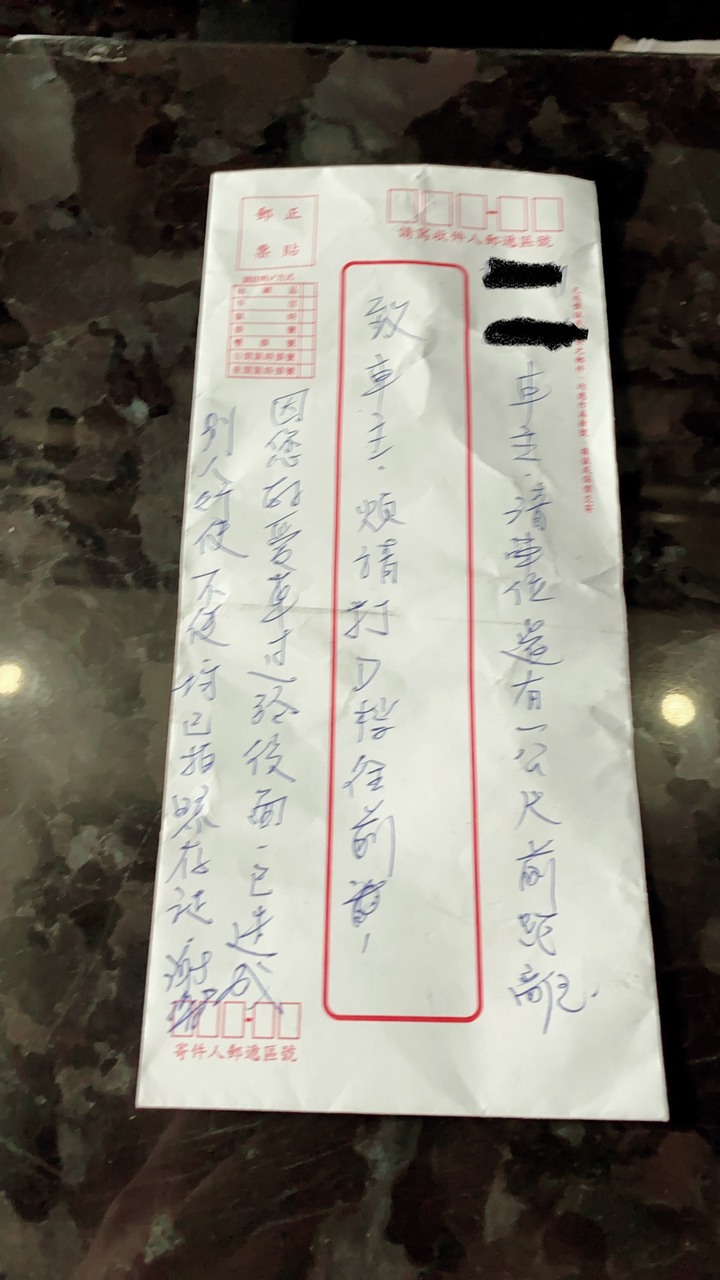 請寫收件人郵遞區號
車主.請車位還有一公尺前距離.
致車主.煩請打D檔往前
正貼
郵票
因您的愛車过於後面.已造成
別人行使不便 將已拍照存証.謝謝
寄件人郵遞區號